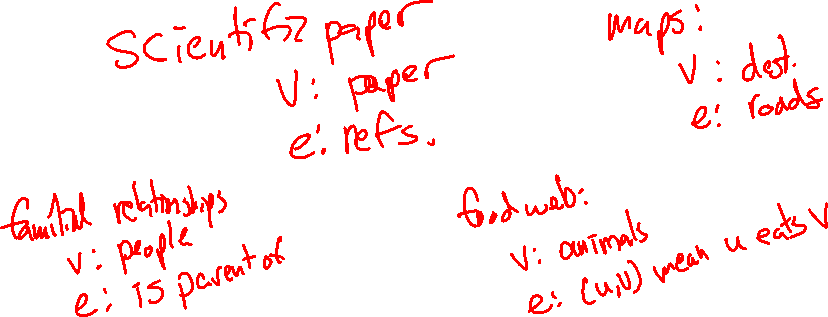 scientific paper
V: paper
e: refs.
maps:
V: dest.
e: roads
familial relationships
V: people
e: is parent of
food web:
V: animals
e: (u,v) mean u eats v